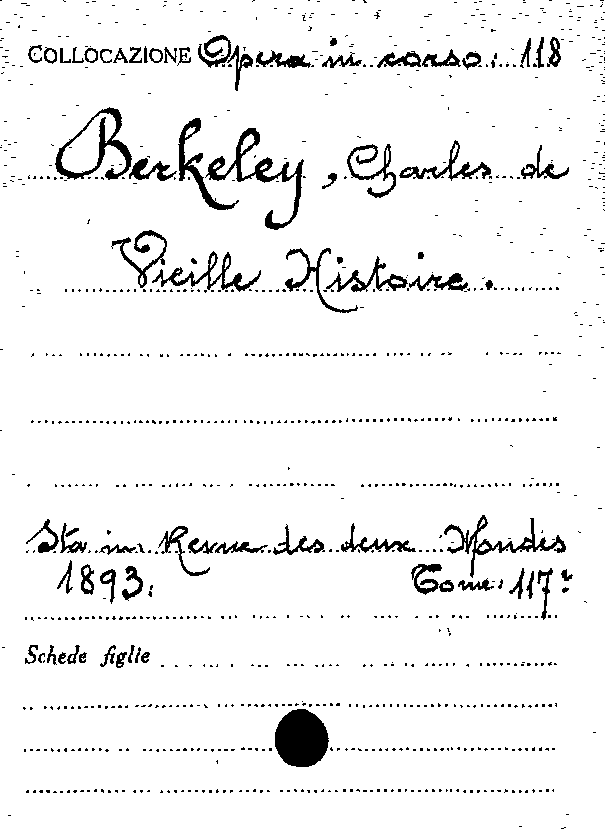 COLLOCAZIONE Opera in corso: 118
Berkeley, Charles de
Vieille Histoire.
Sta in Revue des deux Mondes
1893. Tome: 117º
Schede figlie